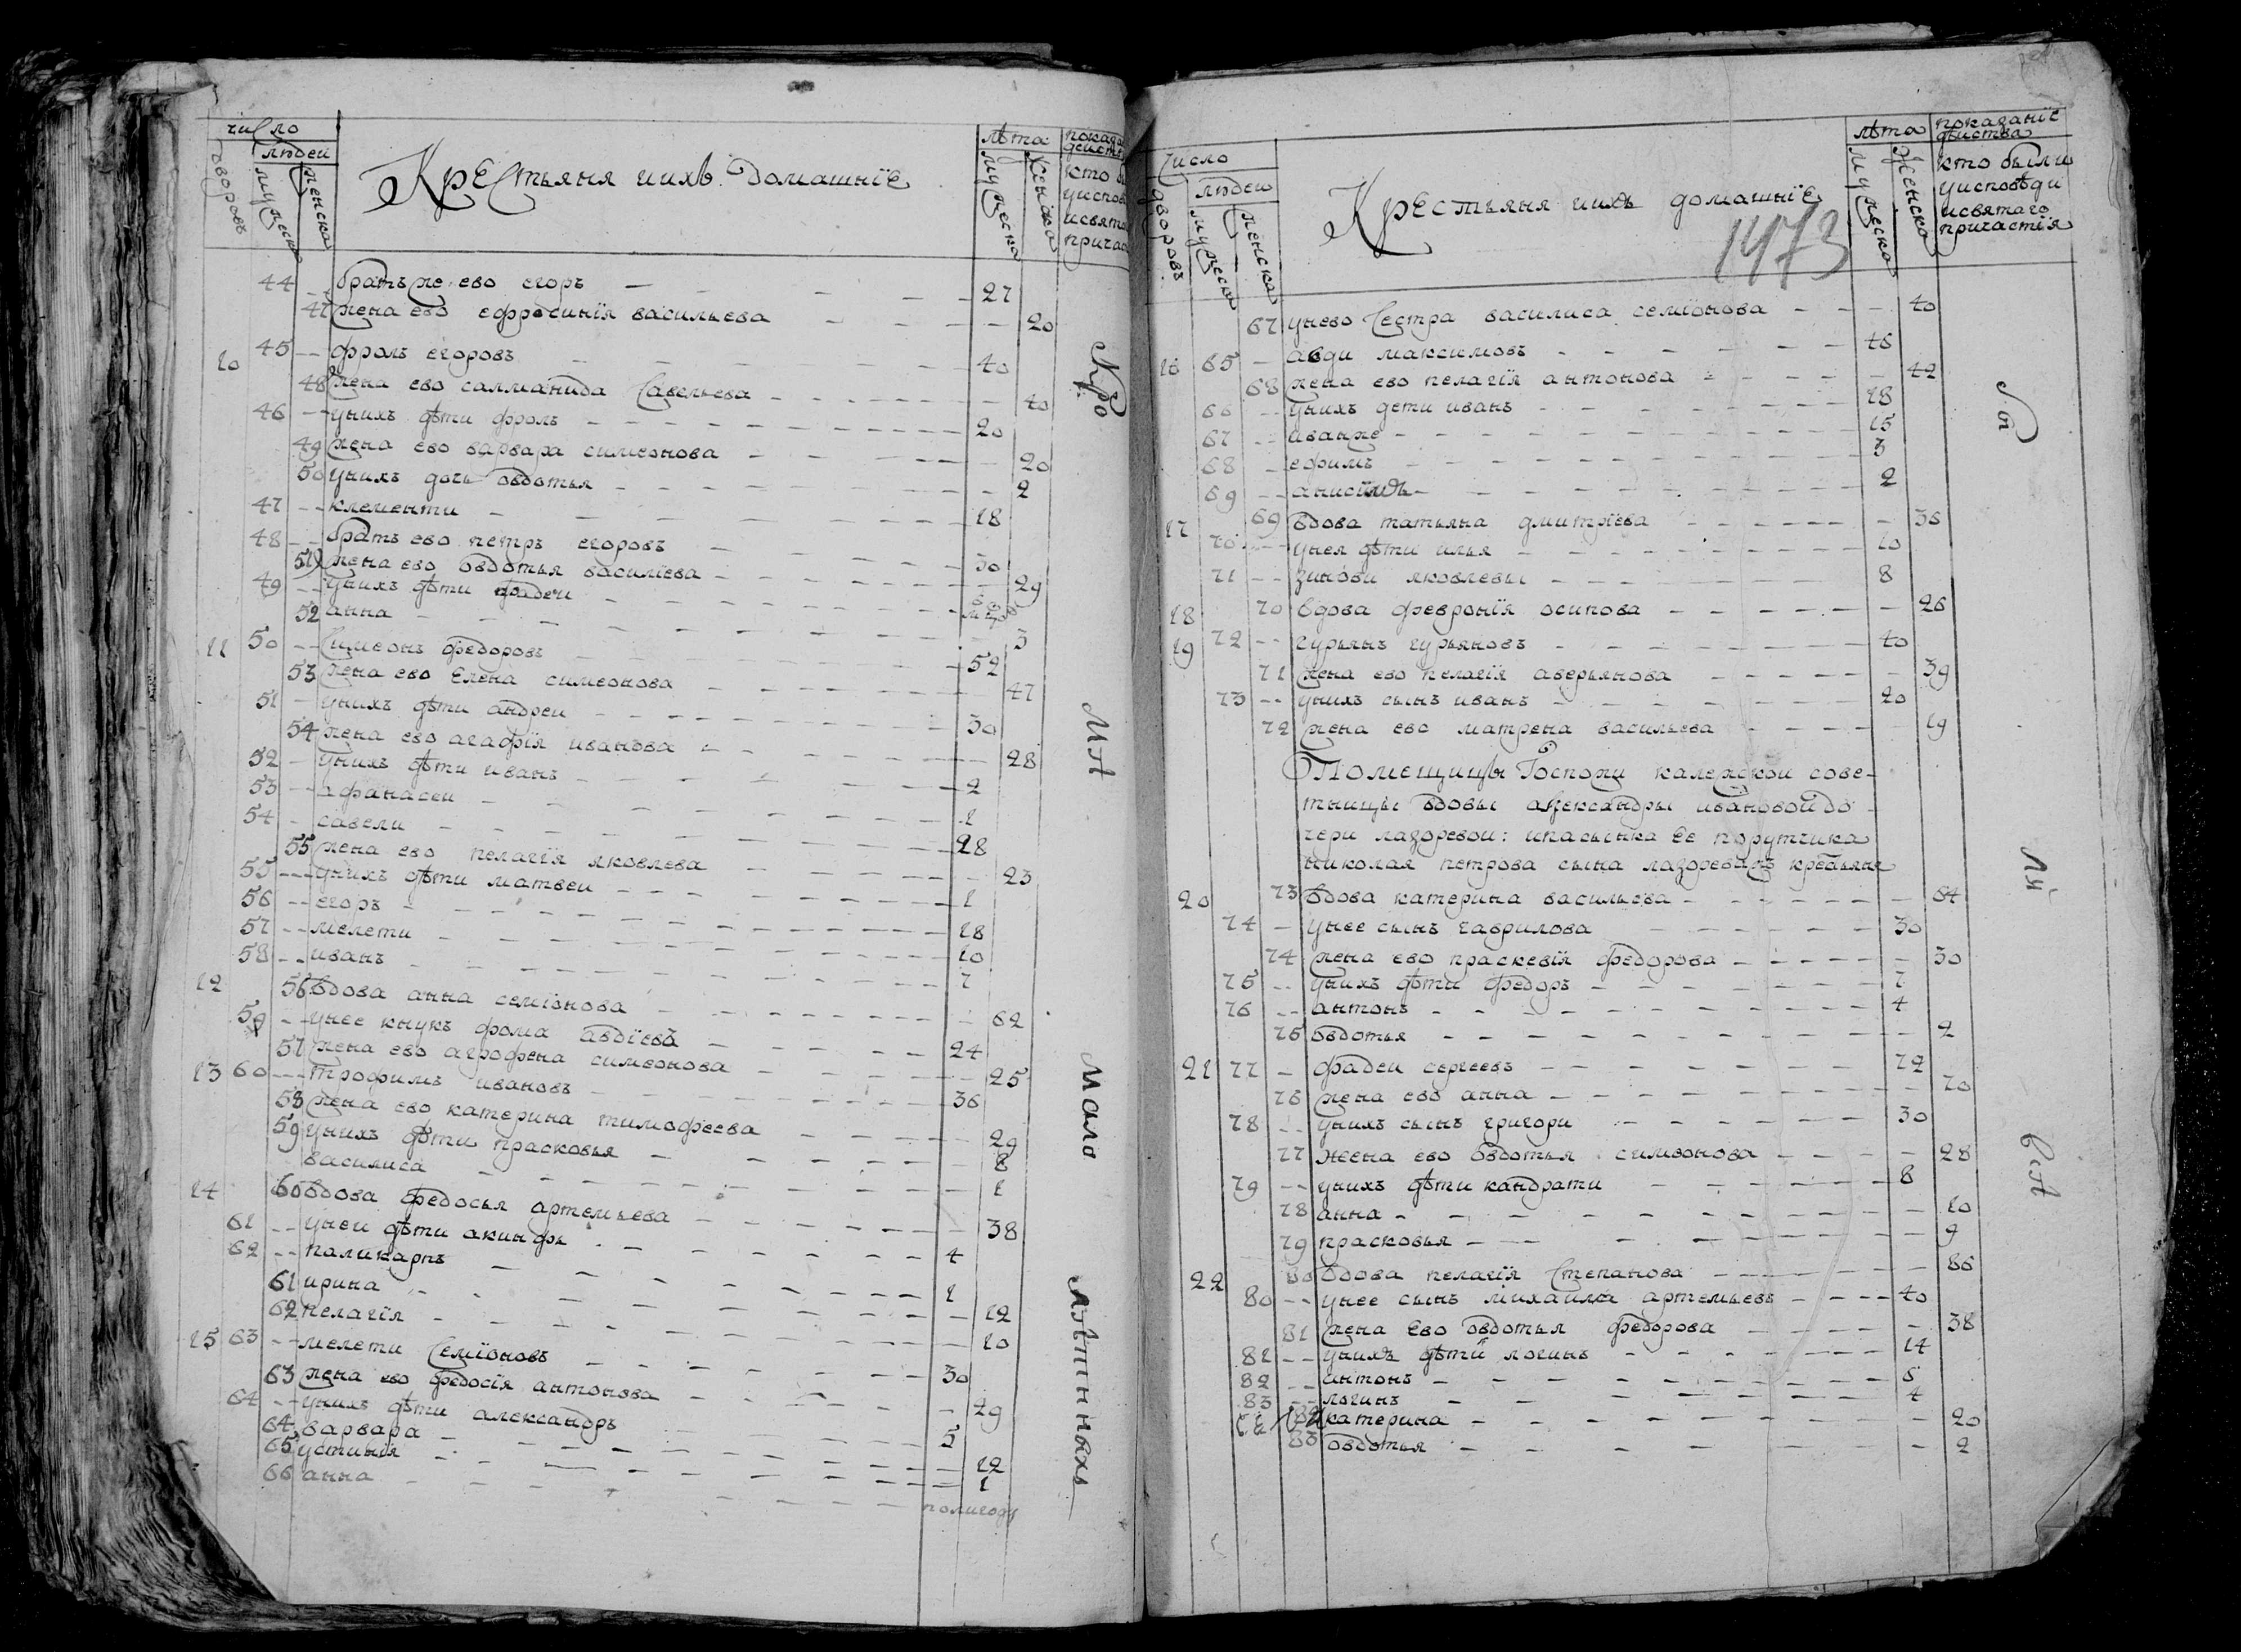 число
людей
дворовъ
мужеска
женска
Крестьяня иихъ домашнїе
лѣта
мужеска
женска
показа
деист
кто б
уиспов
исвято
прича
44 -- братъже ево егоръ 27
47 жена ево ефросинїя васильева 20
10 45 -- фролъ егоровъ 40
48 жена ево салманида савельева 40
46 -- унихъ дѣти фролъ 20
49 жена ево варвара симеонова 20
50 унихъ дочь овдотья 2
47 -- клементи 18
48 -- братъ ево петръ егоровъ 30
51 жена ево овдотья василїева 29
49 -- унихъ дѣти фадеи
52 анна 3
11 50 -- симеонъ федоровъ 52
53 жена ево елена симеонова 47
51 - унихъ дѣти андреи 30
54 жена ево агафїя иванова 28
52 - унихъ дѣти иванъ 2
53 -- афанасеи 1
54 - савели 28
55 жена ево пелагїя яковлева 23
55 -- унихъ дѣти матвеи 1
56 -- егоръ 18
57 -- мелети 10
58 -- иванъ 7
12 56 вдова анна семїонова 62
59 -- унее внукъ фома авдїевъ 24
57 жена ево агрофена симеонова 25
13 60 -- трофимъ ивановъ 36
58 жена ево катерина тимофеева 29
59 унихъ дѣти прасковья 8
василиса 1
14 60 вдова федосья артемьева 38
61 -- унеи дѣти акинфъ 4
62 -- паликарпъ 1
61 ирина 12
62 пелагїя 10
15 63 -- мелети семїоновъ 30
63 жена ево федосїя антонова 29
64 -- унихъ дѣти александръ 5
64 варвара 12
65 устинїя 1
66 анна полугоду
Кро
мѣ
мала
лѣтныхъ
число
людеи
дворовъ
мужеска
женска
Крестьяня иихъ домашнїе
1473
лѣта
мужеска
женска
показанїе
дѣиства
кто были
уисповѣди
исвятаго
причастїя
67 унево сестра василиса семїонова 40
16 65 - авди максимовъ 46
68 жена ево пелагїя антонова 42
66 -- унихъ дети иванъ 18
67 -- иванже 15
68 - ефимъ 3
69 -- анисимъ 2
17 69 вдова татьяна дмитрїева 36
70 -- унея дѣти илья 10
71 -- зинови яковлевы 8
18 70 вдова февронїя осипова 26
19 72 -- гурьянъ гурьяновъ 40
71 жена ево пелагїя аверьянова 39
73 -- унихъ сынъ иванъ 20
72 жена ево матрена васильева 19
Помещицы Госпожи калежскои сове-
тницы вдовы александры ивановои до-
чери лазоревои: ипасынка ее порутчика
николая петрова сына лазорева крестьяня
20 73 вдова катерина васильева 64
74 - унее сынъ гаврилова 30
74 жена ево праскевїя федорова 30
75 -- унихъ дѣти федоръ 7
76 -- антонъ 4
75 овдотья 2
21 77 - фадеи сергеевъ 72
76 жена ево анна 70
78 -- унихъ сынъ григори 30
77 жеена ево овдотья симеонова 28
79 -- унихъ дѣти кандрати 8
78 анна 10
79 прасковья 9
22 80 вдова пелагїя степанова 86
80 -- унее сынъ михаила артемьевъ 40
81 жена ево овдотья федорова 38
81 -- унихъ дѣти логинъ 14
82 -- антонъ 5
83 -- логинъ 4
82 катерина 20
83 овдотья 2